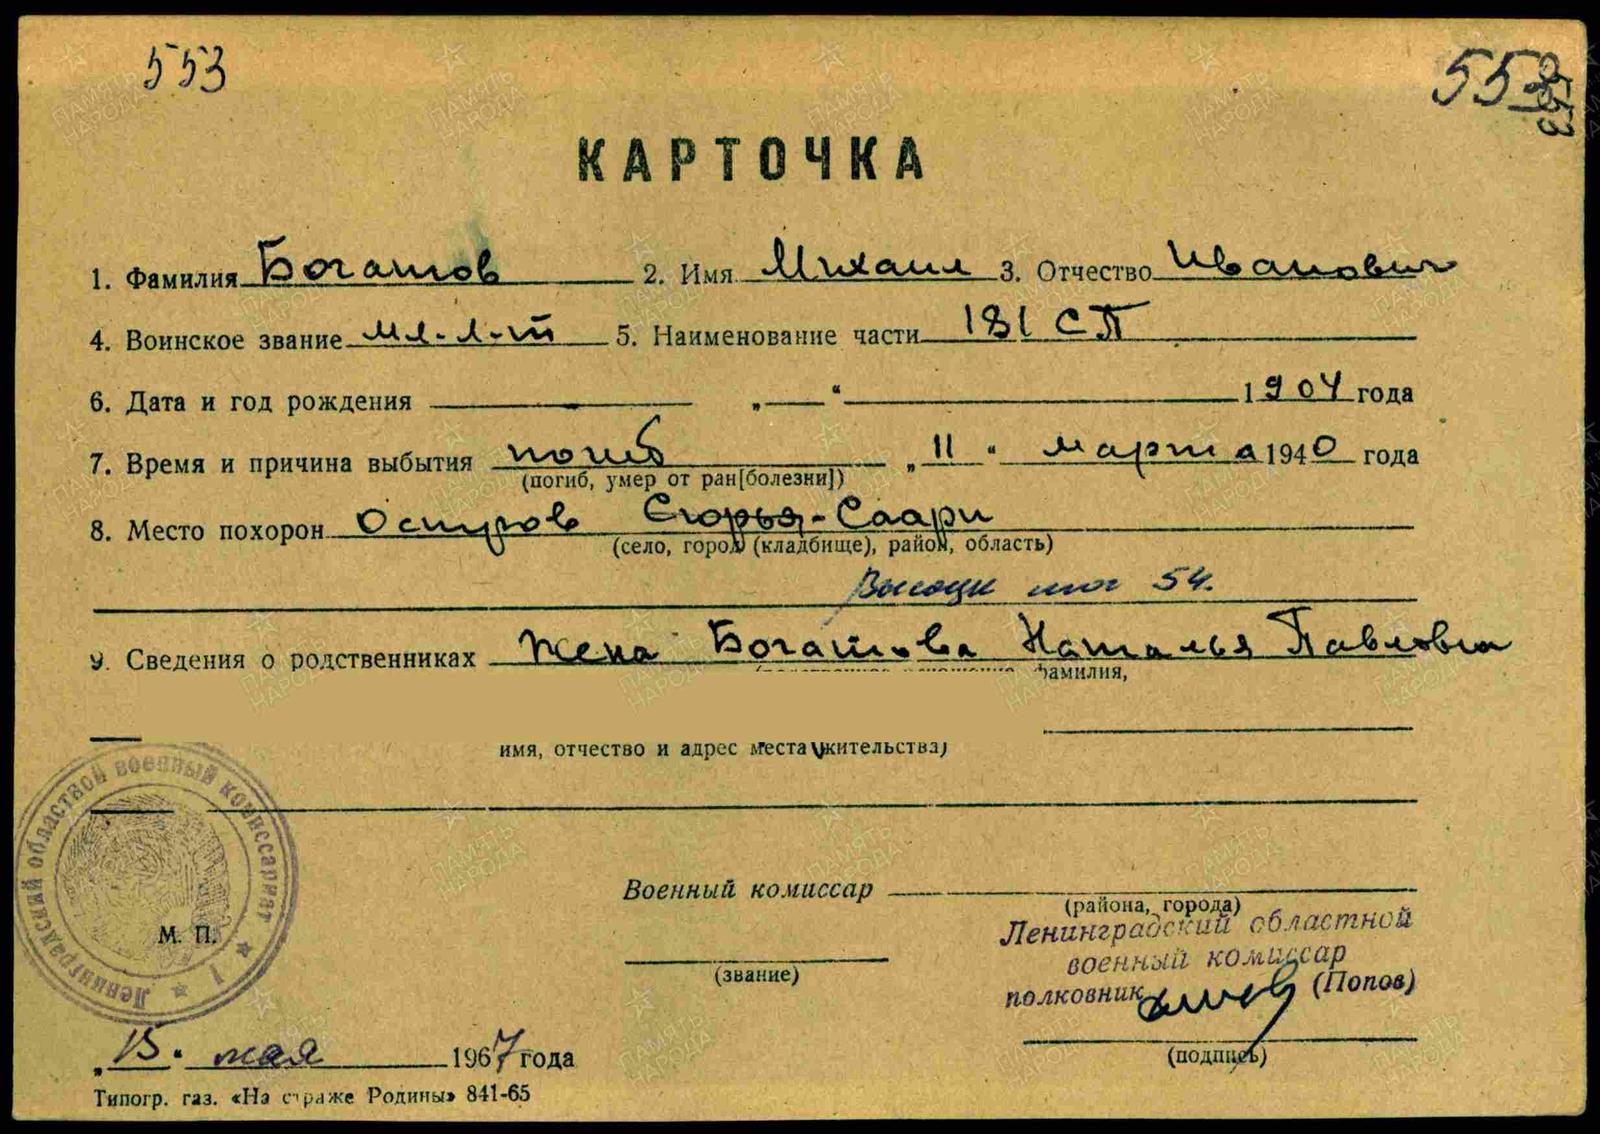 553
553
КАРТОЧКА
1. Фамилия Богатов 2. Имя Михаил 3. Отчество Иванович
4. Воинское звание мл-л-т 5. Наименование части 181 СП
6. Дата и год рождения „ “ 1904 года
7. Время и причина выбытия погиб „11“ марта 1940 года
(погиб, умер от ран[болезни])
8. Место похорон Остров Егорья-Саари
(село, город (кладбище), район, область)
54.
9. Сведения о родственниках жена Богатова Наталья Павловна
фамилия,
имя, отчество и адрес места жительства)
Военный комиссар
(района, города)
Ленинградский областной
военный комиссар
полковник (Попов)
(звание)
(подпись)
Ленинградский областной военный комиссариат
1
М. П.
„15“ мая 1967 года
Типогр. газ. «На страже Родины» 841-65
ПАМЯТЬ НАРОДА